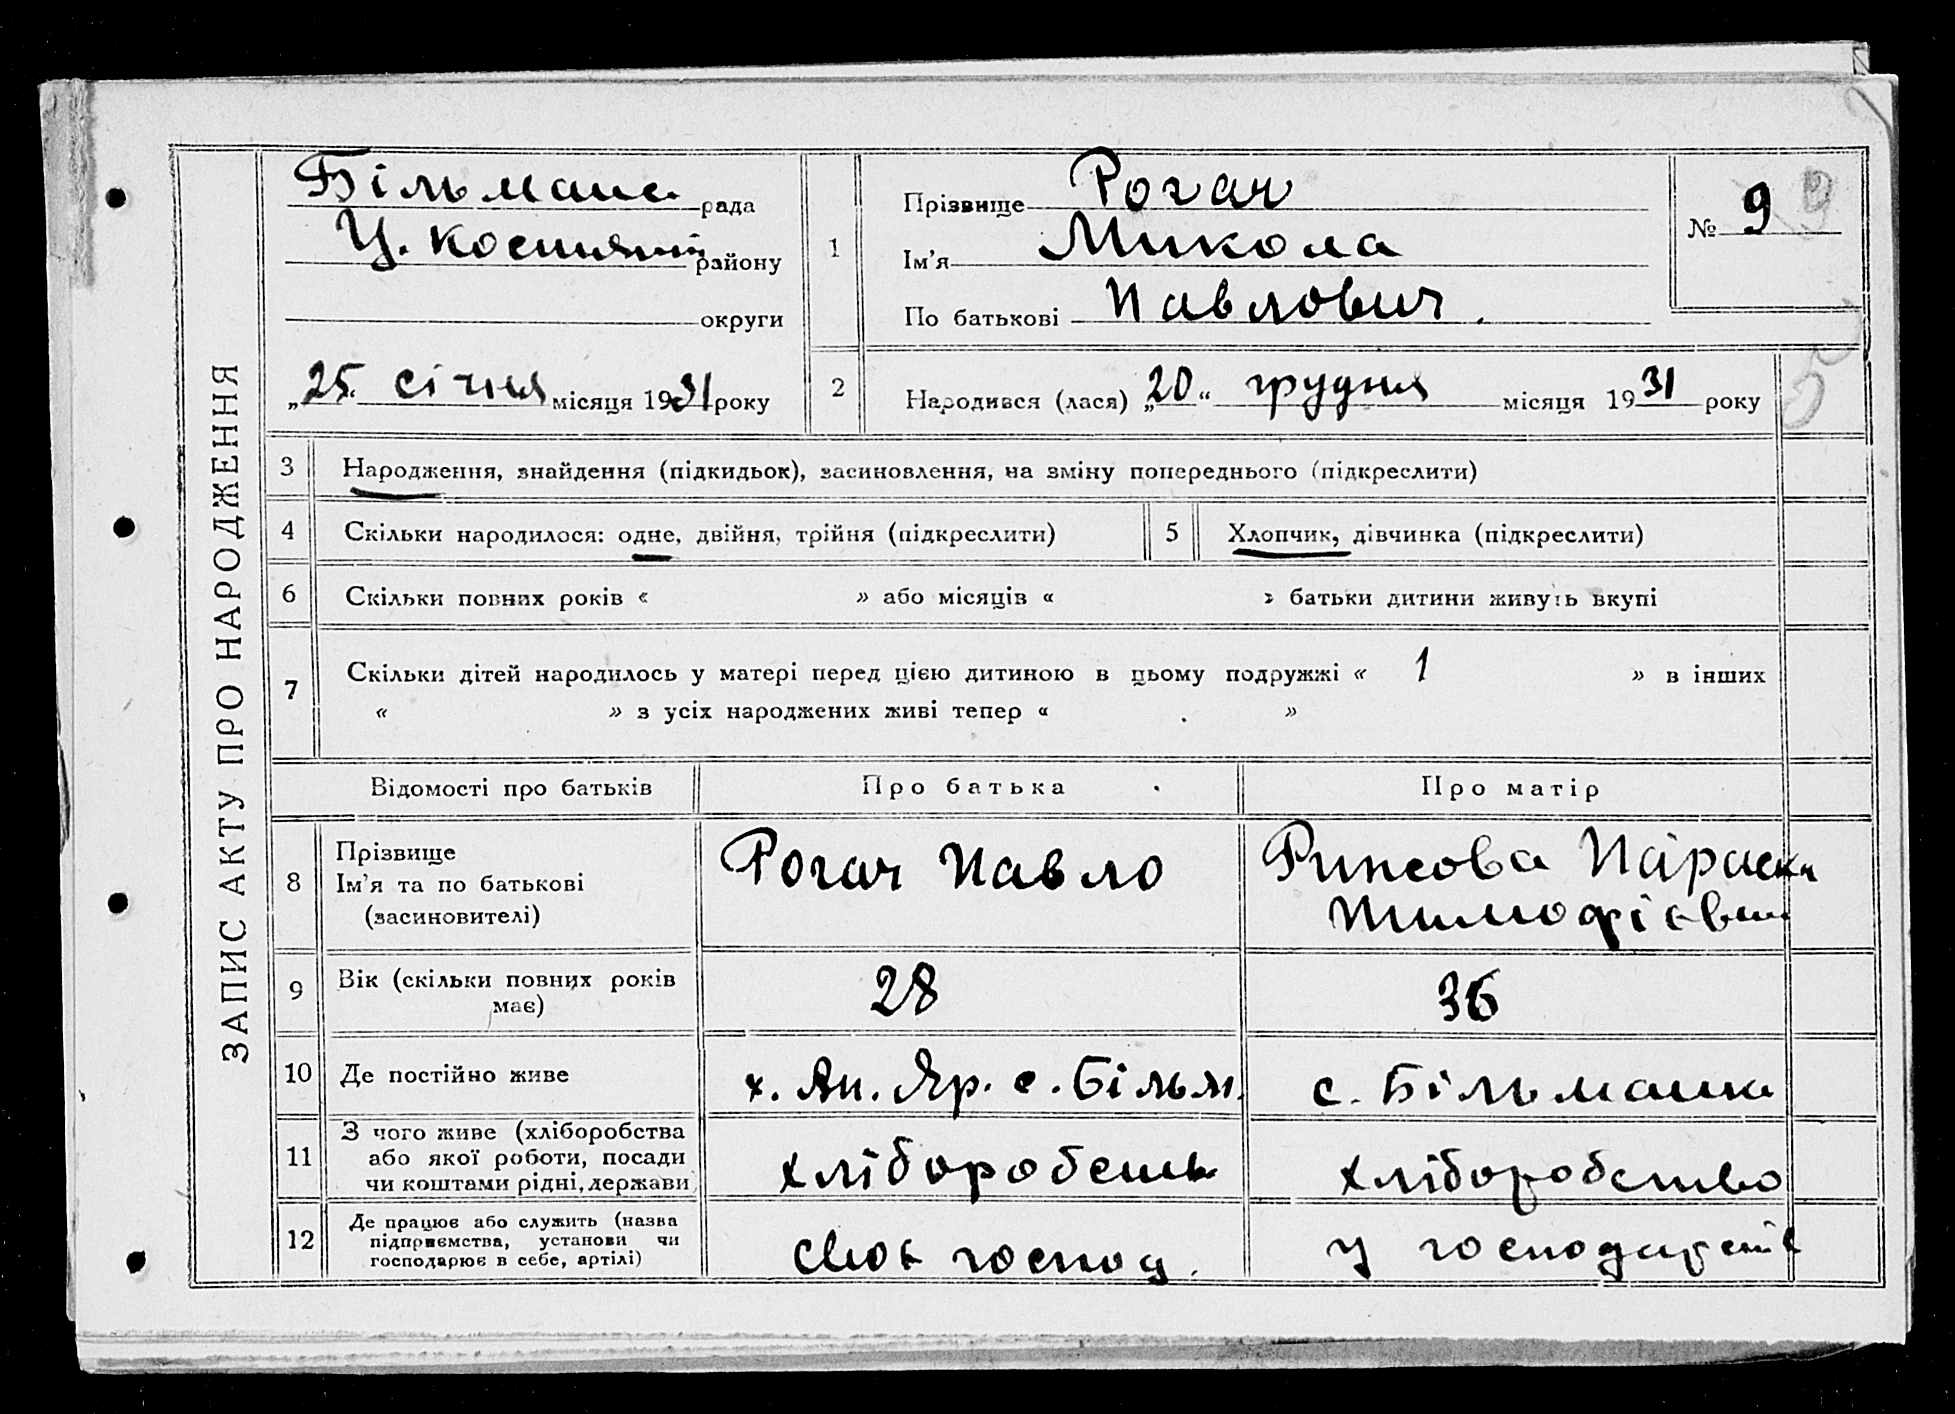 ЗАПИС АКТУ ПРО НАРОДЖЕННЯ
Більманс рада
Ц. району
округи
„25“ січня місяця 1931 року
1
Прізвище Рогач
Ім’я Микола
По батькові Павлович.
№ 9 9
2
Народився (лася) „20“ грудня місяця 1931 року
5
3 Народження, знайдення (підкидьок), засиновлення, на зміну попереднього (підкреслити)
4 Скільки народилося: одне, двійня, трійня (підкреслити) 5 Хлопчик, дівчинка (підкреслити)
6 Скільки повних років « » або місяців « » батьки дитини живуть вкупі
7 Скільки дітей народилось у матері перед цією дитиною в цьому подружжі « 1 » в інших
« » з усіх народжених живі тепер « »
Відомості про батьків Про батька Про матір
8 Прізвище
Ім’я та по батькові
(засиновителі)
Рогач Павло
Параск
Тимофієвн
9 Вік (скільки повних років
має)
28 36
10 Де постійно живе х. Ан. Яр. с. Більм. с. Більманка
11 З чого живе (хліборобства
або якої роботи, посади
чи коштами рідні, держави
хліборобств хліборобство
12 Де працює або служить (назва
підприємства, установи чи
господарює в себе, артілі)
своє господ. у господарстві